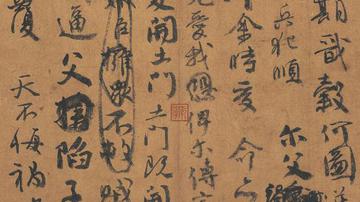 期戩穀何圖
兵犯順尔父
余時受命
愛我俾尔傳
開土門土門既開
臣擁衆不救
逼父陷子
覆天不悔禍